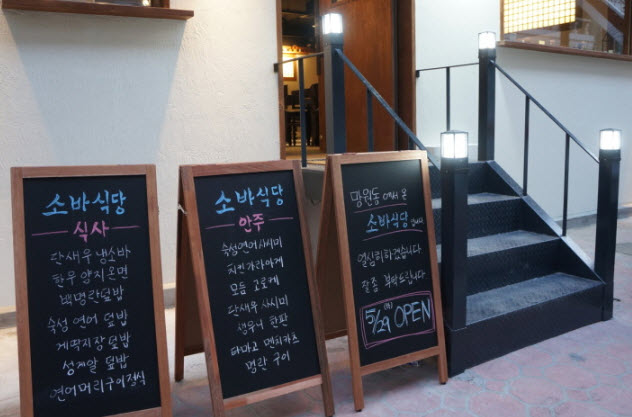 소바식당
식사
단새우 냉소바
한우 양지온면
백명란덮밥
숙성 연어 덮밥
게딱지장 덮밥
성게알 덮밥
연어머리구이정식
소바식당
안주
숙성연어사시미
치킨가라아게
모듬 고로케
단새우 사시미
생우니 한판
타마고 멘치카츠
명란 구이
망원동에서 온
소바식당
열심히하겠습니다
잘좀 부탁드립니다
5/29 OPEN